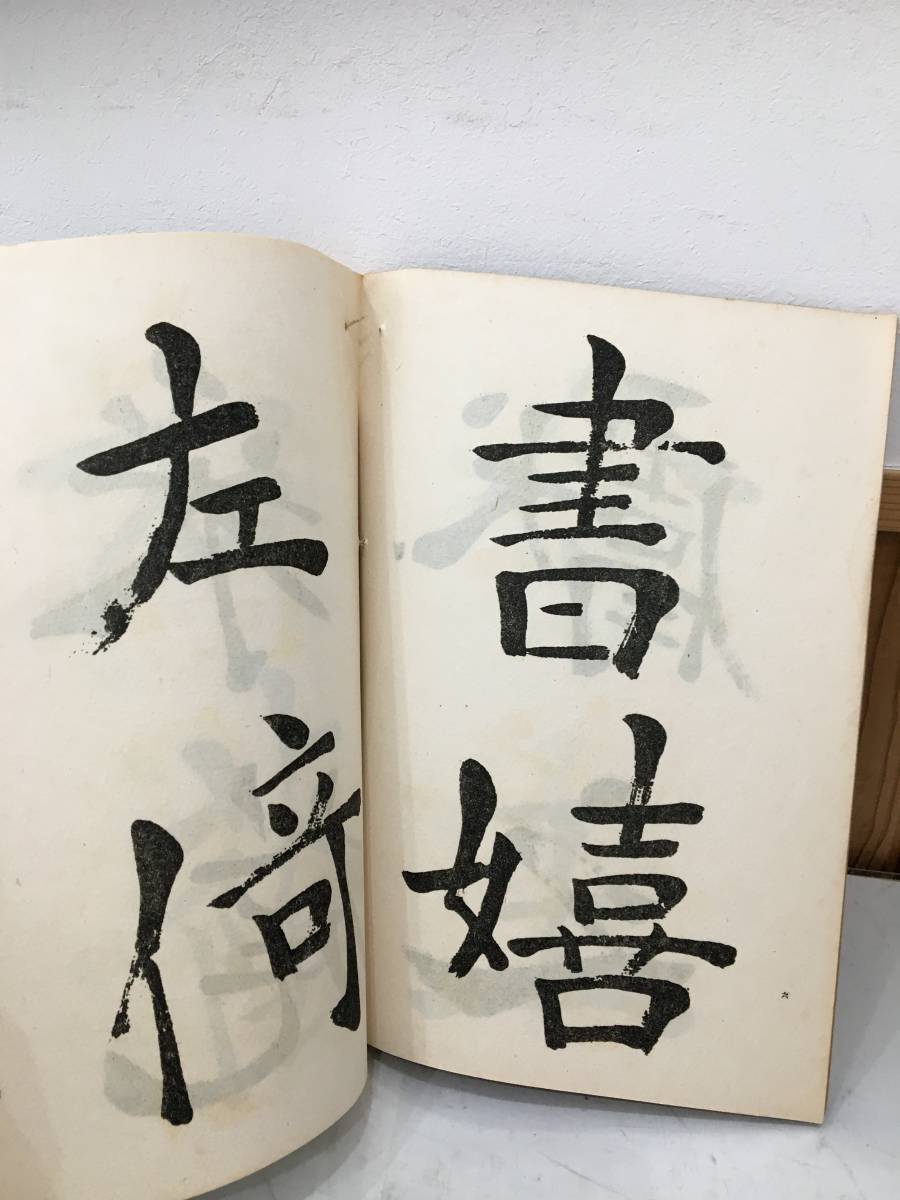 書嬉
六
左倚